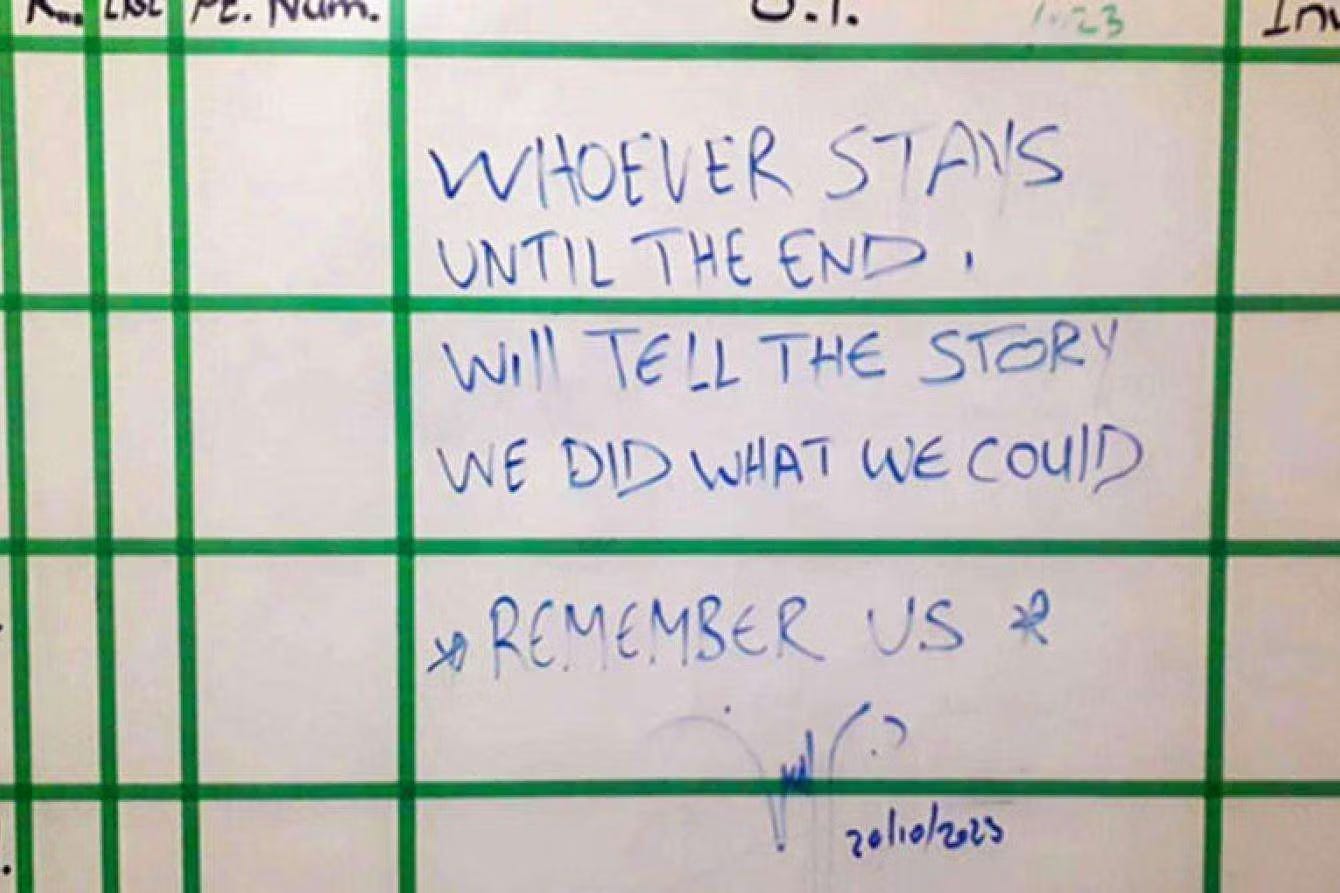 Pt. Num.
WHOEVER STAYS
UNTIL THE END.
Will TELL THE STORY
WE DID WHAT WE COULD
* REMEMBER US *
20/10/2023